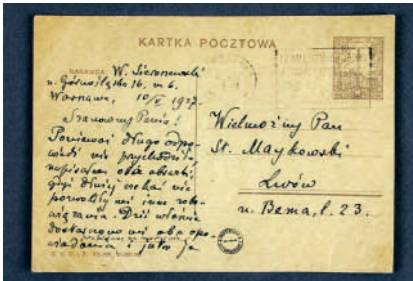 KARTKA POCZTOWA
NADAWCA W. Sieroszewski
u. Górnośląska 16. m 6.
Warszawa, 10/V 1927.
Szanowny Panie!
Ponieważ długo odpo-
wiedzi nie
napisałem oba
gdyż dłużej czekać nie
pozwoliły mi inne zobo-
wiązania. Dziś właśnie
dostarczono mi oba opo-
wiadania i jutro je
Wielmożny Pan
St. Maykowski
Lwów
u. Bema, l. 23.